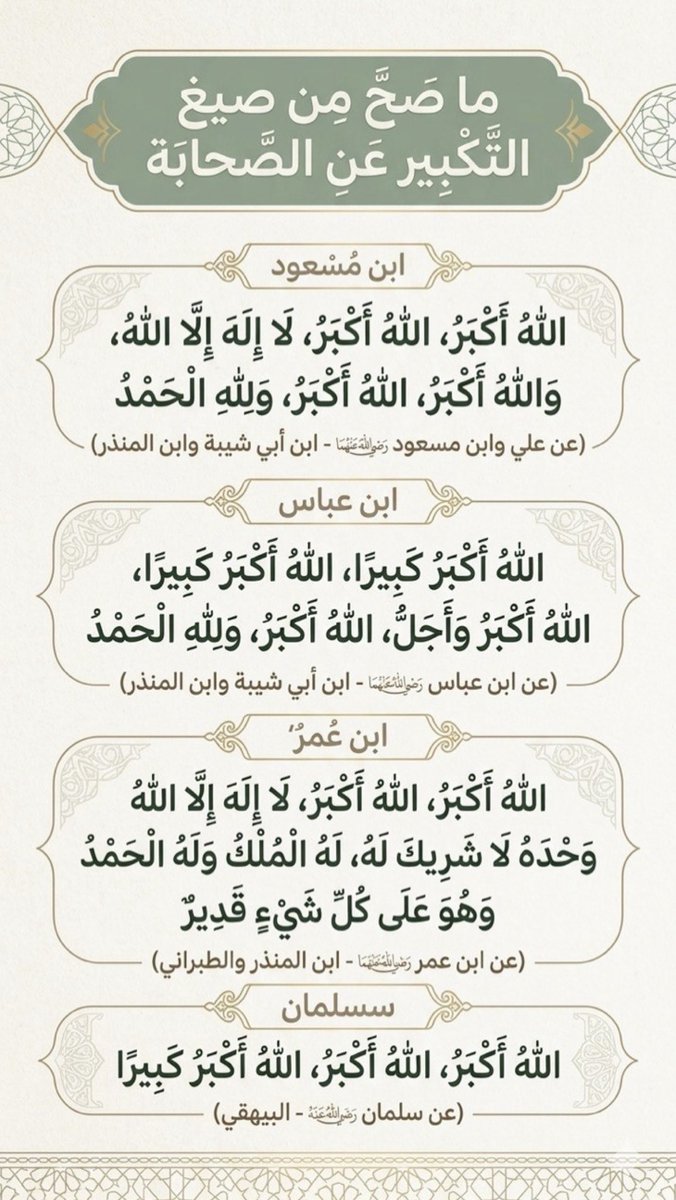 ما صَحَّ مِن صيغ
التَّكْبِير عَنِ الصَّحابَة
ابن مُسْعود
اللهُ أَكْبَرُ، اللهُ أَكْبَرُ، لَا إِلَهَ إِلَّا اللهُ،
وَاللهُ أَكْبَرُ، اللهُ أَكْبَرُ، وَلِلهِ الْحَمْدُ
(عن علي وابن مسعود رَضِيَ اللهُ عَنْهُمَا - ابن أبي شيبة وابن المنذر)
ابن عباس
اللهُ أَكْبَرُ كَبِيرًا، اللهُ أَكْبَرُ كَبِيرًا،
اللهُ أَكْبَرُ وَأَجَلُّ، اللهُ أَكْبَرُ، وَلِلهِ الْحَمْدُ
(عن ابن عباس رَضِيَ اللهُ عَنْهُمَا - ابن أبي شيبة وابن المنذر)
ابن عُمرُ‘
اللهُ أَكْبَرُ، اللهُ أَكْبَرُ، لَا إِلَهَ إِلَّا اللهُ
وَحْدَهُ لَا شَرِيكَ لَهُ، لَهُ الْمُلْكُ وَلَهُ الْحَمْدُ
وَهُوَ عَلَى كُلِّ شَيْءٍ قَدِيرٌ
(عن ابن عمر رَضِيَ اللهُ عَنْهُمَا - ابن المنذر والطبراني)
سسلمان
اللهُ أَكْبَرُ، اللهُ أَكْبَرُ، اللهُ أَكْبَرُ كَبِيرًا
(عن سلمان رَضِيَ اللهُ عَنْهُ - البيهقي)